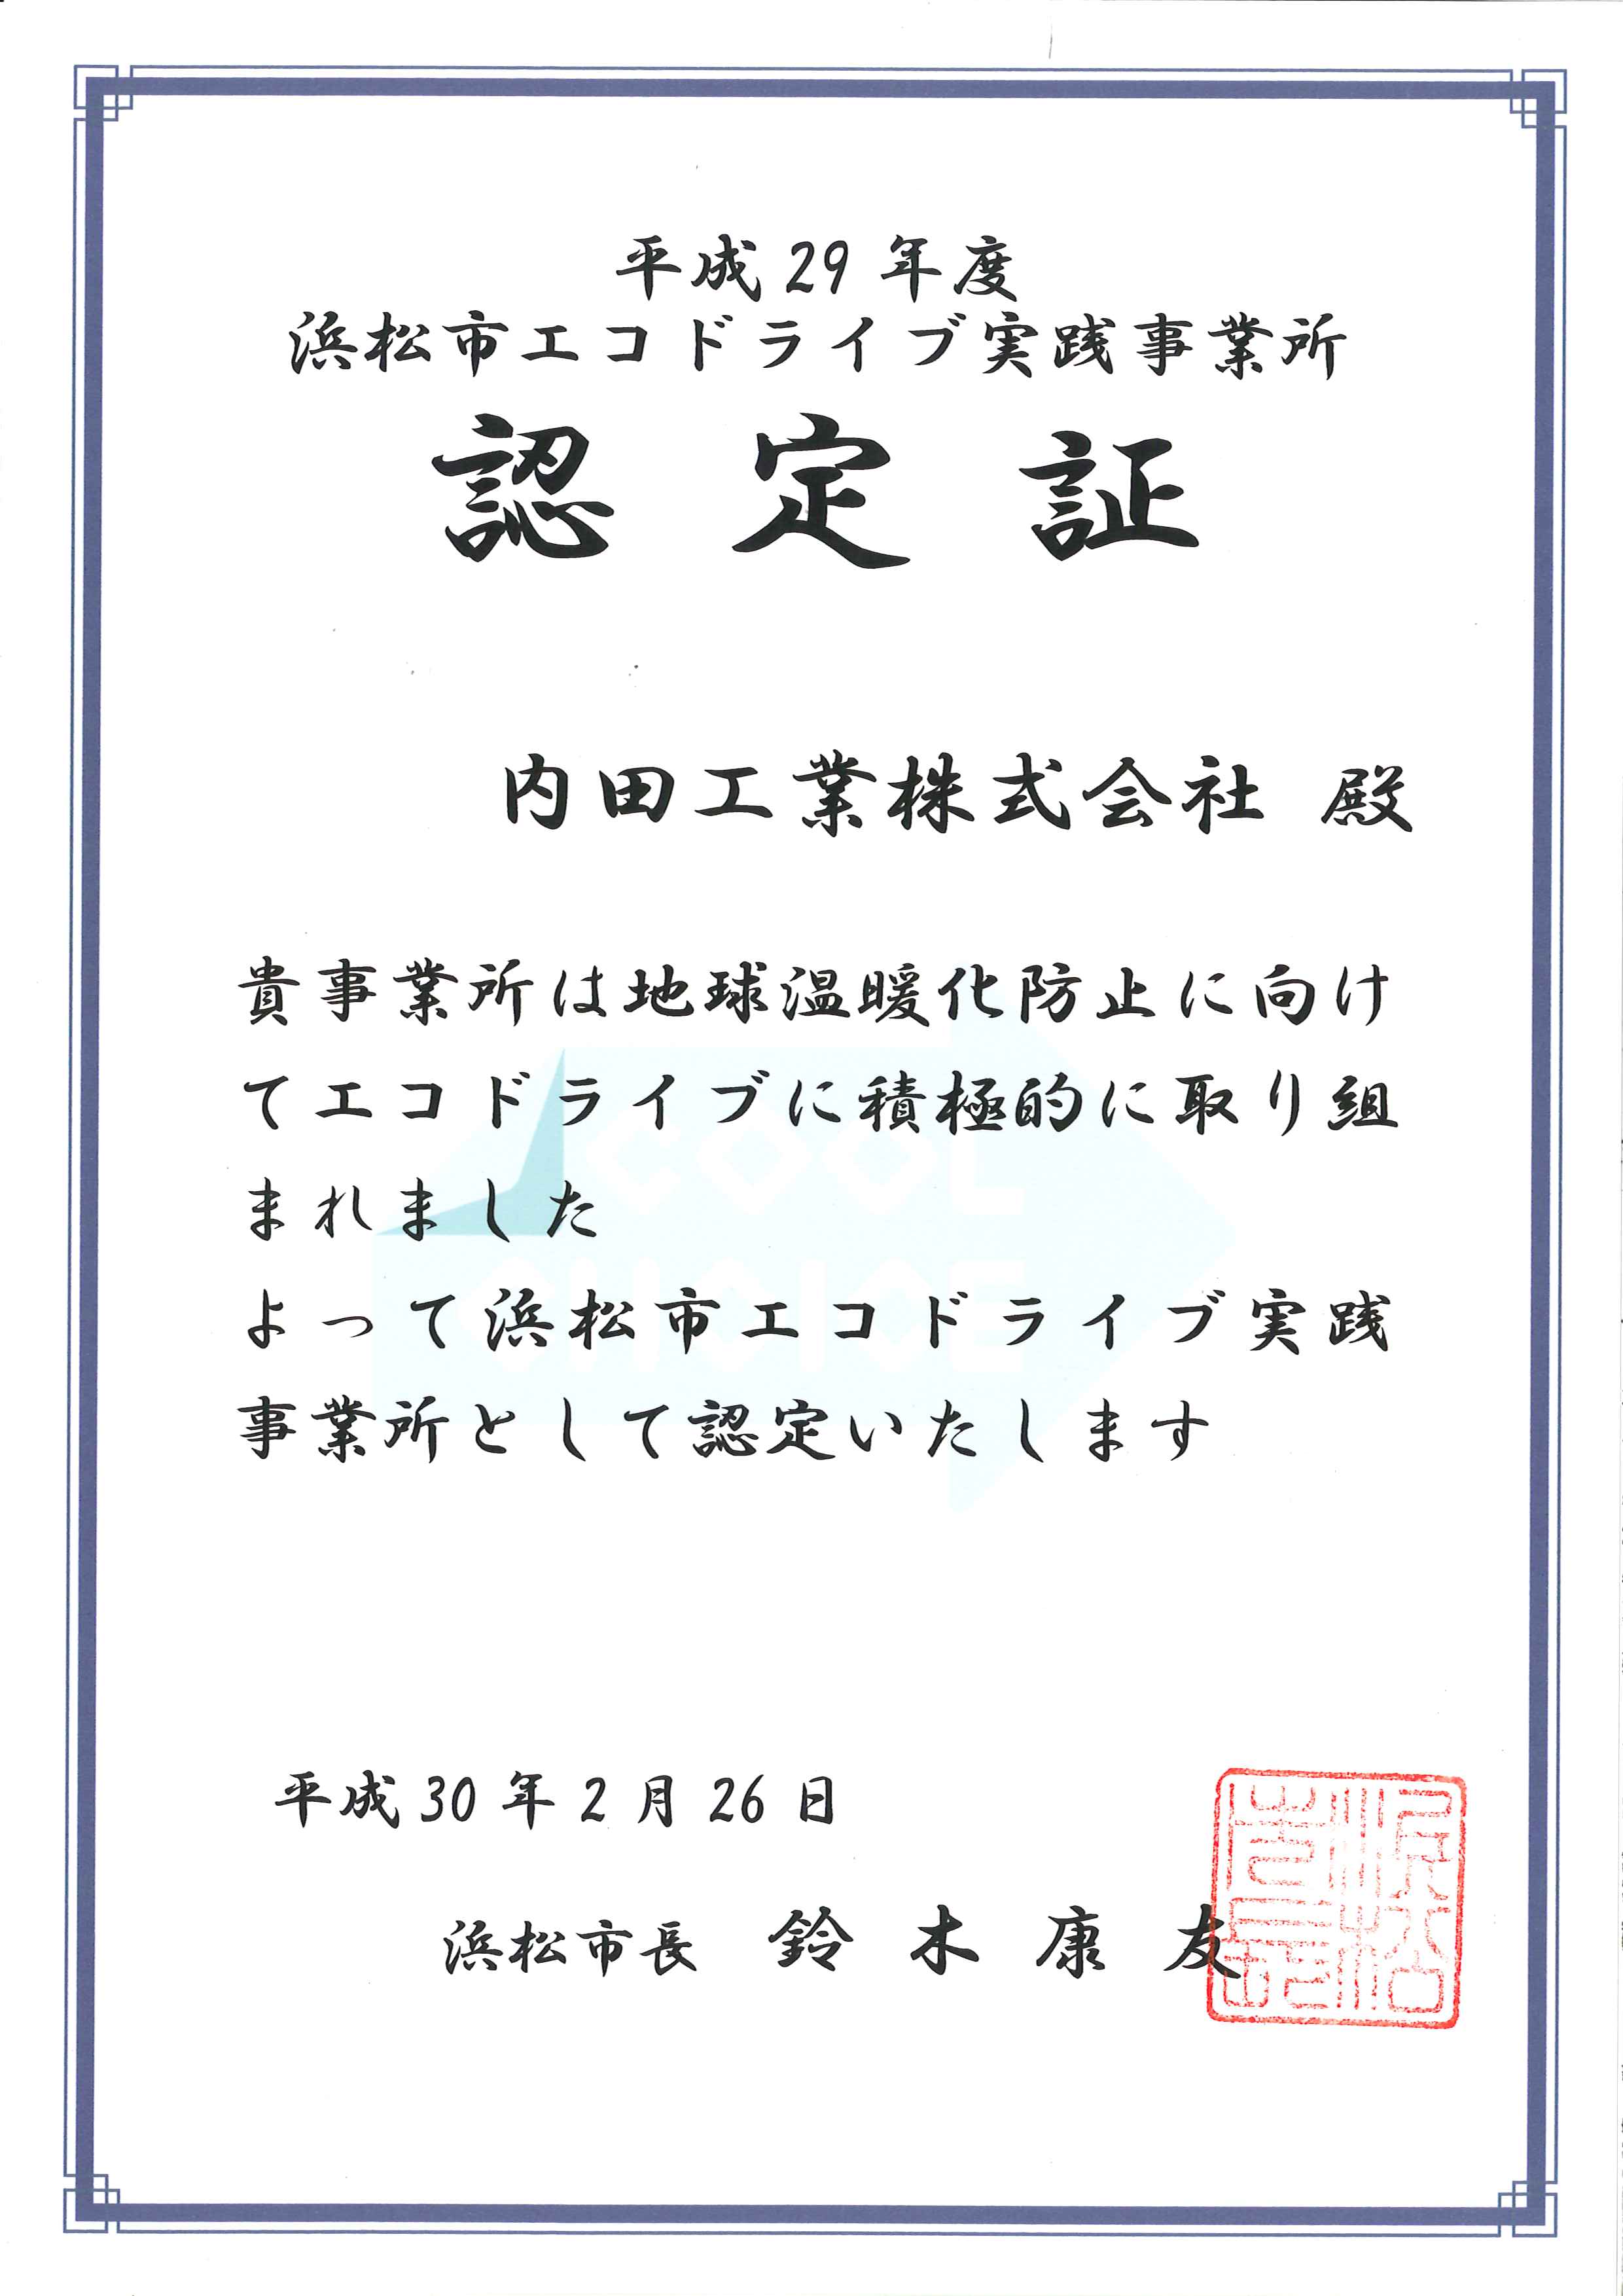 平成29年度
浜松市エコドライブ実践事業所
認定証
内田工業株式会社 殿
貴事業所は地球温暖化防止に向け
てエコドライブに積極的に取り組
まれました
よって浜松市エコドライブ実践
事業所として認定いたします
COOL
CHOICE
平成30年2月26日
浜松市長 鈴木康友